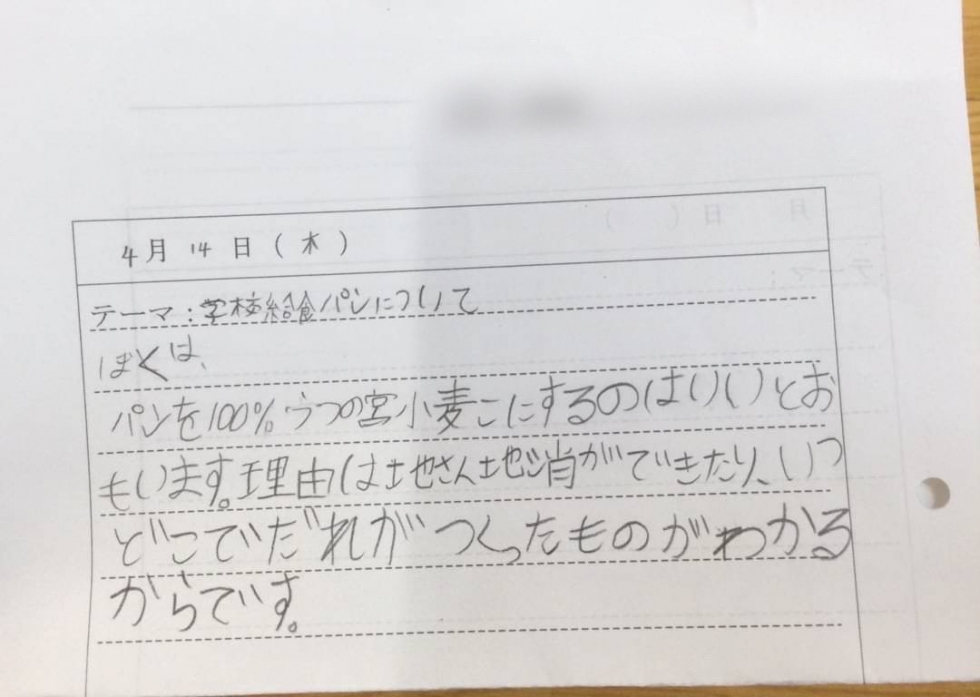 4月 14 日 ( 木 )
テーマ:学校給食パンについて
ぼくは、
パンを100%うつの宮小麦こにするのはいいとお
もいます。理由は地さん地消ができたり、いつ
どこでだれがつくったものがわかる
からです。